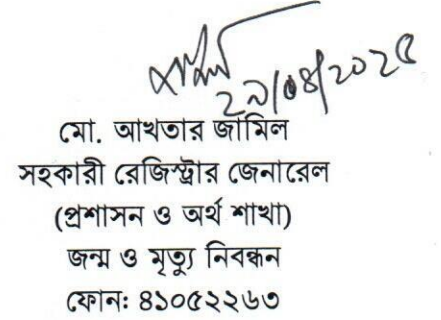 ২৯/০৪/২০২৫
মো. আখতার জামিল
সহকারী রেজিস্ট্রার জেনারেল
(প্রশাসন ও অর্থ শাখা)
জন্ম ও মৃত্যু নিবন্ধন
ফোনঃ ৪১০৫২২৬৩